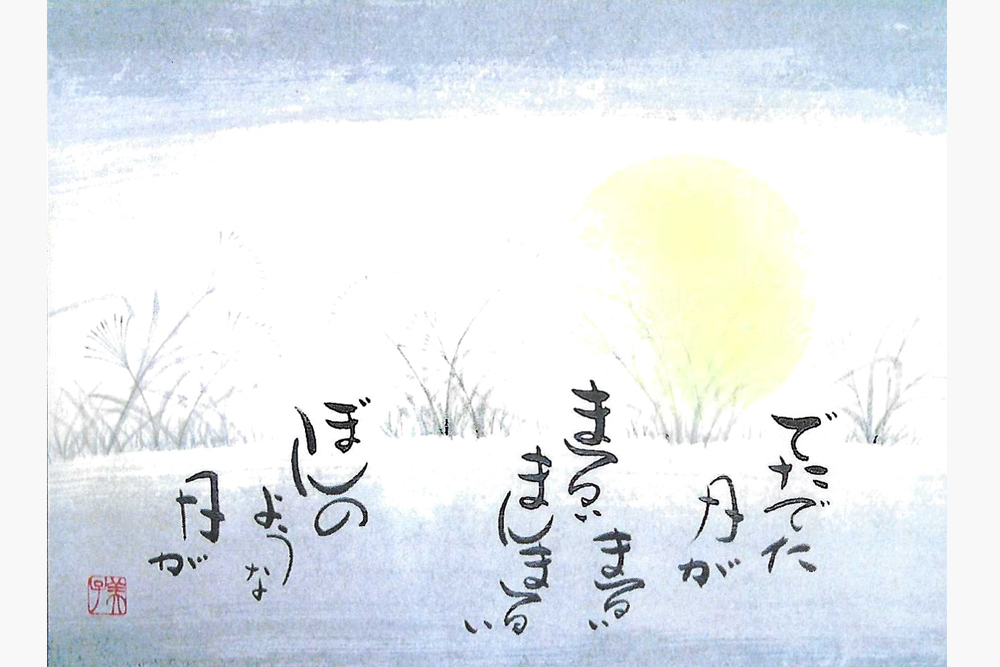 でたでた
月が
まるい まるい
まんまるい
ぼんの
ような
月が
美子